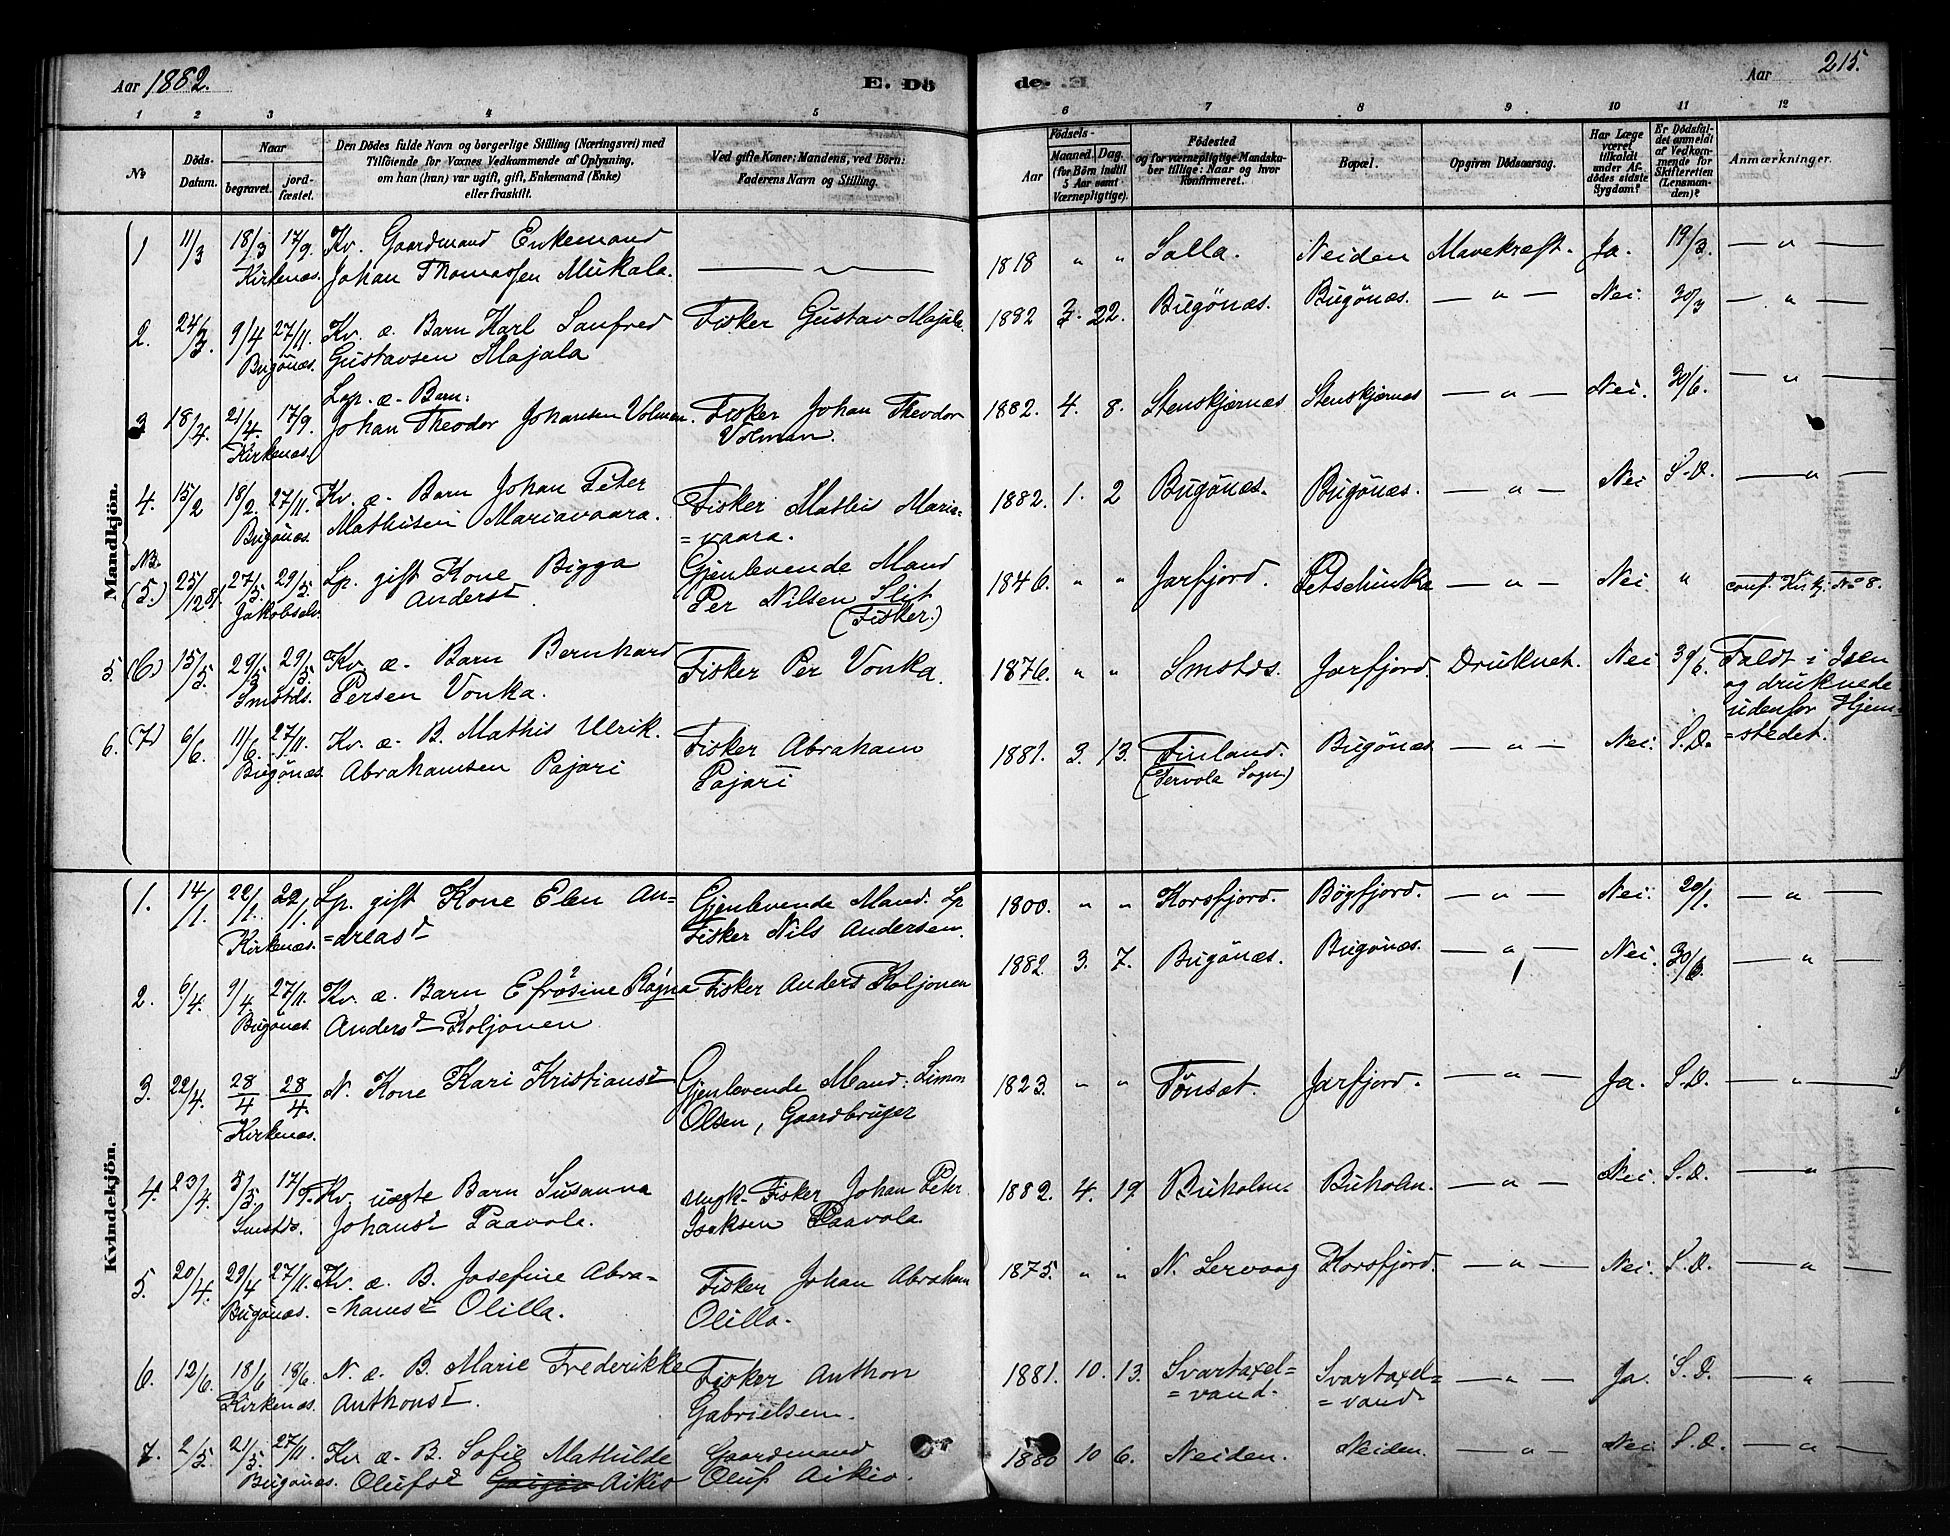 Aar 1882. E. Dö de. E Aar 215.
1 2 3 4 5 6 7 8 9 10 11 12
No Döds-Datum. Naar begravet. jordfæstet. Den Dödes fulde Navn og borgerlige Stilling (Næringsvei) med Tilföiende for Voxnes Vedkommende af Oplysning, om han (hun) var ugift, gift, Enkemand (Enke) eller fraskilt. Ved gifte Koner: Mandens, ved Börn: Faderens Navn og Stilling. Födsels- Aar Maaned. Dag. (for Börn indtil 5 Aar samt Værnepligtige). Födested og for værnepligtige Mandskaber tillige: Naar og hvor Konfirmeret. Bopæl. Opgiven Dödsaarsag. Har Læge været tilkaldt under Afdödes sidste Sygdom? Er Dödsfaldet anmeldt af Vedkommende for Skifteretten (Lensmanden)? Anmærkninger.
Mandkjön.
1 11/3 18/3 17/9. Kv. Gaardmand Enkemand — " — 1818 " " Salla. Neiden Mavekræft. Ja. 19/3. — " —
Kirkenæs. Johan Thomassen Mukala.
2. 24/3. 9/4 27/11. Kv. æ. Barn Karl Sanfred Fisker Gustav Majala 1882 3. 22. Bugönæs. Bugönæs. — " — Nei. 30/3 — " —
Bugönæs. Gustavsen Majala
Lap. æ. Barn:
3 18/4. 21/4. 17/9. Johan Theodor Johansen Volman. Fisker Johan Theodor 1882. 4. 8. Stenskjærnæs Stenskjærnæs — " — Nei. 30/6. — " —
Kirkenæs. Volman.
4. 15/2 18/2. 27/11. Kv. æ. Barn Johan Peter Fisker Mathis Maria= 1882. 1. 2 Bugönæs. Bugönæs. — " — Nei S.D. — " —
Bugönæs Mathisen Mariavaara. =vaara.
NB. (5.) 25/12 81. 27/5. 29/5. Lp. gift Kone Bigga Gjenlevende Mand 1846. " " Jarfjord. Petschinka — " — Nei " conf. Kv. kj. No 8.
Jakobselv Andersd Per Nilsen Slit
(Fisker.)
5 (6) 15/5. 29/5 29/5. Kv. æ. Barn Bernhard Fisker Per Vonka. 1876. " " Smstds. Jarfjord Druknet. Nei 3/6. Faldt i Isen
Smstds. Persen Vonka. og druknede
udenfor Hjem=
=stedet.
6. (7) 6/6. 11/6. 27/11. Kv. æ. B. Mathis Ulrik. Fisker Abraham 1881. 3. 13. Finland. Bugönæs — " — Nei. S.D.
Bugönæs. Abrahamsen Pajari Pajari (Tervola Sogn)
Kvindekjön.
1. 14/1. 22/1. 22/1. Lp. gift Kone Elen An= Gjenlevende Mand: Lp 1800. " " Korsfjord. Bögfjord. — " — Nei. 20/1. — " —
Kirkenæs. =dreasd Fisker Nils Andersen.
2. 6/4. 9/4 27/11. Kv. æ. Barn Efrosine Ragna Fisker Anders Koljonen 1882. 3. 7. Bugönæs. Bugönæs. — " — Nei. 30/6. — " —
Bugönæs. Andersd Koljonen
3. 22/4. 28/4 28/4. N. Kone Kari Kristiansd Gjenlevende Mand: Simon 1823. " " Tönset. Jarfjord. — " — Ja. S.D. — " —
Kirkenæs. Olsen, Gaardbruger
4. 23/4. 5/5. 17/9. Kv. uægte Barn Susanna ungk. Fisker Johan Peter 1882. 4. 19. Buholm. Buholm. — " — Nei. S.D. — " —
Smstds. Johansd Paavola. Isaksen Paavola.
5. 20/4. 29/4 27/11. Kv. æ. B. Josefine Abra= Fisker Johan Abraham 1875. " " N. Lervaag Korsfjord. — " — Nei. S.D. — " —
Bugönæs. =hamsd Olilla. Olilla.
6. 12/6. 18/6 18/6. N. æ. B. Marie Frederikke Fisker Anthon 1881. 10. 13. Svartaxel= Svartaxel= — " — Ja. S.D. — " —
Kirkenæs. Anthonsd. Gabrielsen. =vand. =vand.
7. 2/5. 21/5. 27/11. Kv. æ. B. Sofie Mathilde Gaardmand 1880 10 6. Neiden. Neiden. — " — Nei. S.D. — " —
Bugönæs. Olufsd Aikio Oluf Aikio.